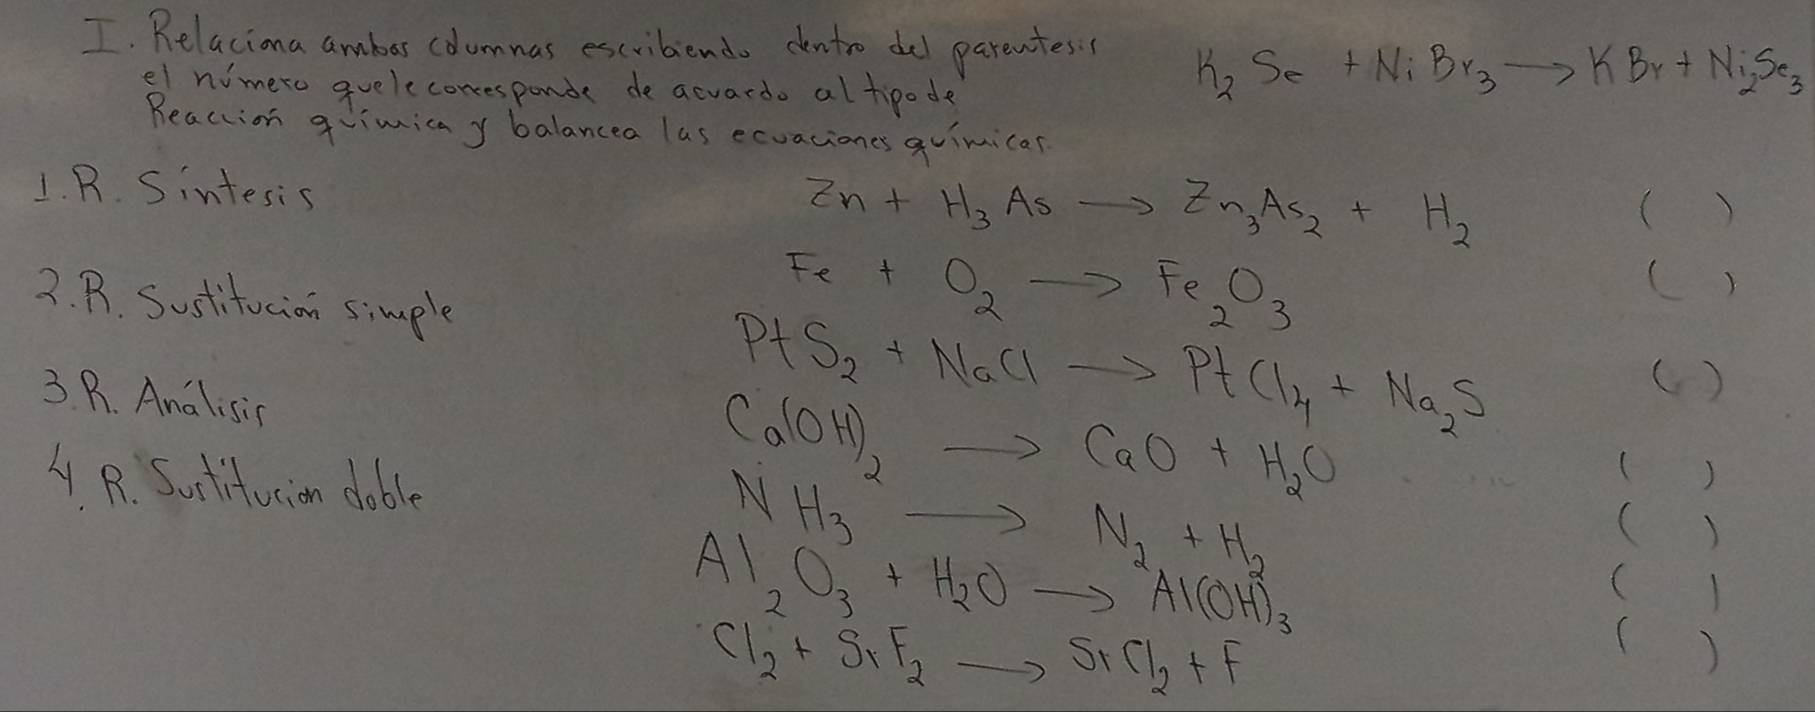 I. Relaciona ambas columnas escribiendo dentro del parentesis
el número que le corresponde de acuardo al tipo de
Reacción química y balancea las ecuaciones químicas.
K₂Se + NiBr₃ → KBr + Ni₂Se₃
1. R. Síntesis
2. R. Sustitución simple
3 R. Análisis
4. R. Sustitucion doble
Zn + H₃As → Zn₃As₂ + H₂ ( )
Fe + O₂ → Fe₂O₃ ( )
PtS₂ + NaCl → PtCl₄ + Na₂S ( )
Ca(OH)₂ → CaO + H₂O ( )
NH₃ → N₂ + H₂ ( )
Al₂O₃ + H₂O → Al(OH)₃ ( )
Cl₂ + SrF₂ → SrCl₂ + F ( )